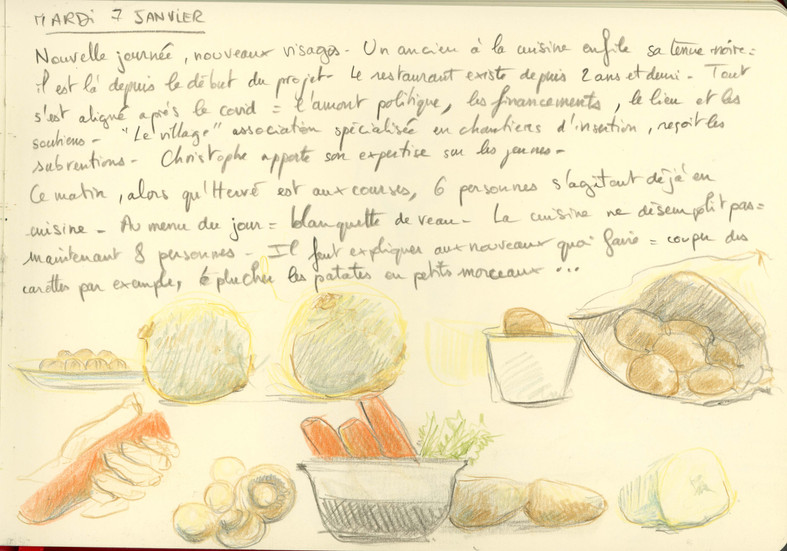 MARDI 7 JANVIER
Nouvelle journée, nouveaux visages - Un ancien à la cuisine enfile sa tenue noire =
il est là depuis le début du projet - Le restaurant existe depuis 2 ans et demi - Tout
s'est aligné après le covid = l'amont politique, les financements, le lieu et les
soutiens - "Le village" association spécialisée en chantiers d'insertion, reçoit les
subventions - Christophe apporte son expertise sur les jeunes -
Ce matin, alors qu'Hervé est aux courses, 6 personnes s'agitent déjà en
cuisine - Au menu du jour = blanquette de veau - La cuisine ne désemplit pas =
maintenant 8 personnes - Il faut expliquer aux nouveaux quoi faire = couper des
carottes par exemple, éplucher les patates en petits morceaux ...